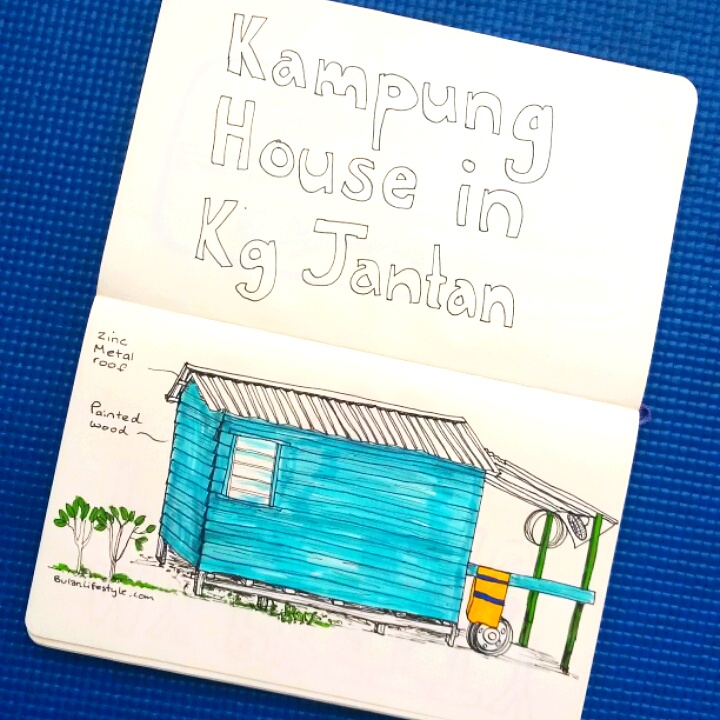 Kampung
House in
Kg Jantan
Zinc
Metal
roof
Painted
wood
BulanLifestyle.com